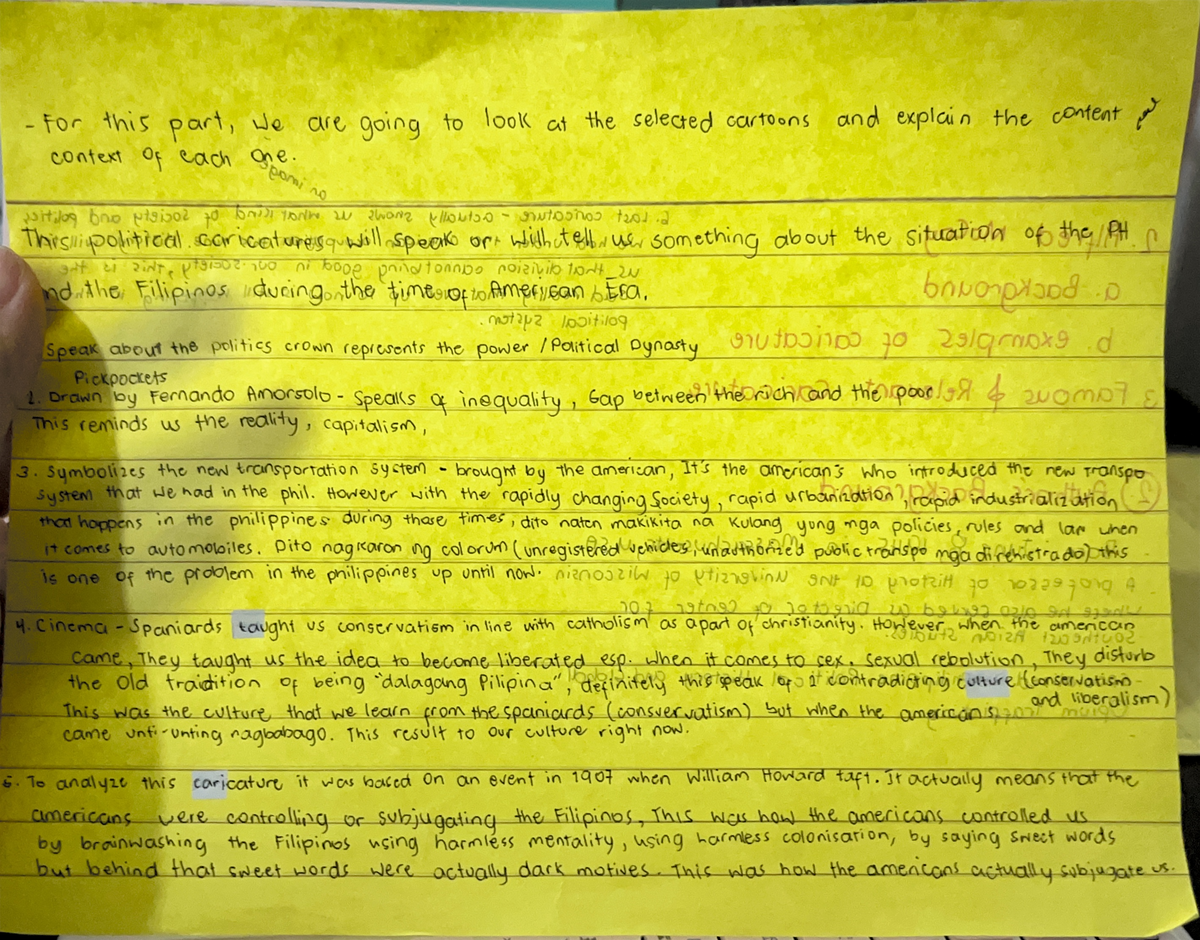 - For this part, we are going to look at the selected cartoons and explain the content and
context of each one.
This political caricatures will speak or will tell us something about the situation of the PH
nd the Filipinos during the time of American Era.
Speak about the politics crown represents the power / Political Dynasty
Pickpockets
2. Drawn by Fernando Amorsolo - Speaks of inequality, Gap between the rich and the poor.
This reminds us the reality, capitalism,
3. Symbolizes the new transportation system - brought by the american, It's the american's who introduced the new transpo
system that we had in the phil. However with the rapidly changing society, rapid urbanization, rapid industrialization
that happens in the philippines during those times, dito naten makikita na kulang yung mga policies, rules and law when
it comes to automobiles. Dito nagkaron ng colorum (unregistered vehicles, unauthorized public transpo mga di rehistrado) this
is one of the problem in the philippines up until now.
4. Cinema - Spaniards taught us conservatism in line with catholism as a part of christianity. However, when the american
came, They taught us the idea to become liberated esp. when it comes to sex. sexual rebolution, They disturb
the old traidition of being "dalagang Pilipina", definitely this speak of 2 contradicting culture (conservatism
and liberalism)
This was the culture that we learn from the spaniards (conservatism) but when the americans
came unti-unting nagbabago. This result to our culture right now.
5. To analyze this caricature it was based on an event in 1907 when William Howard taft. It actually means that the
americans were controlling or subjugating the Filipinos, This was how the americans controlled us
by brainwashing the Filipinos using harmless mentality, using harmless colonisation, by saying sweet words
but behind that sweet words were actually dark motives. This was how the americans actually subjugate us.